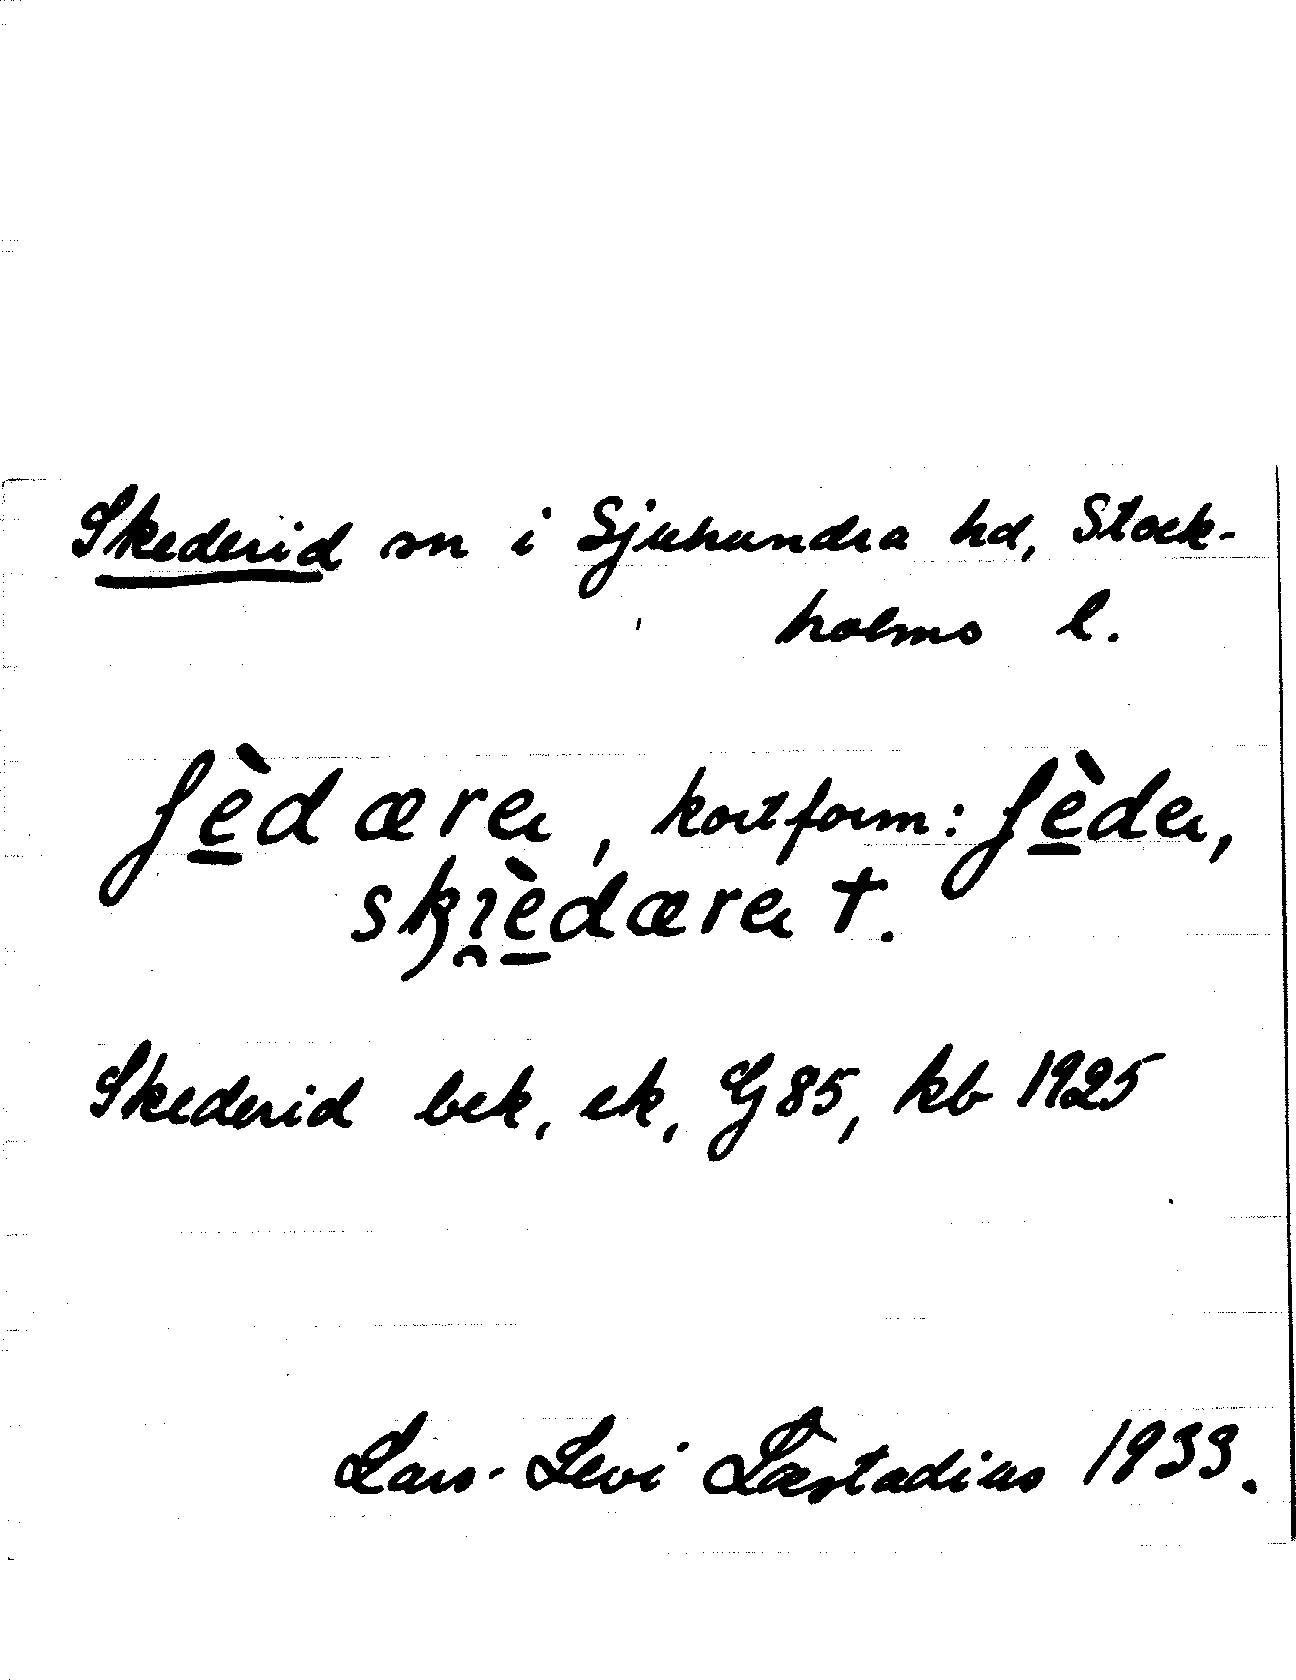 Skederid sn i Sjuhundra hd, Stock-
holms l.
ʃè̱dærɐ, kortform: ʃè̱dɐ,
skı̯è̱dærɐ †.
Skederid bek, ek, G85, kb 1925
Lars-Levi Læstadius 1933.